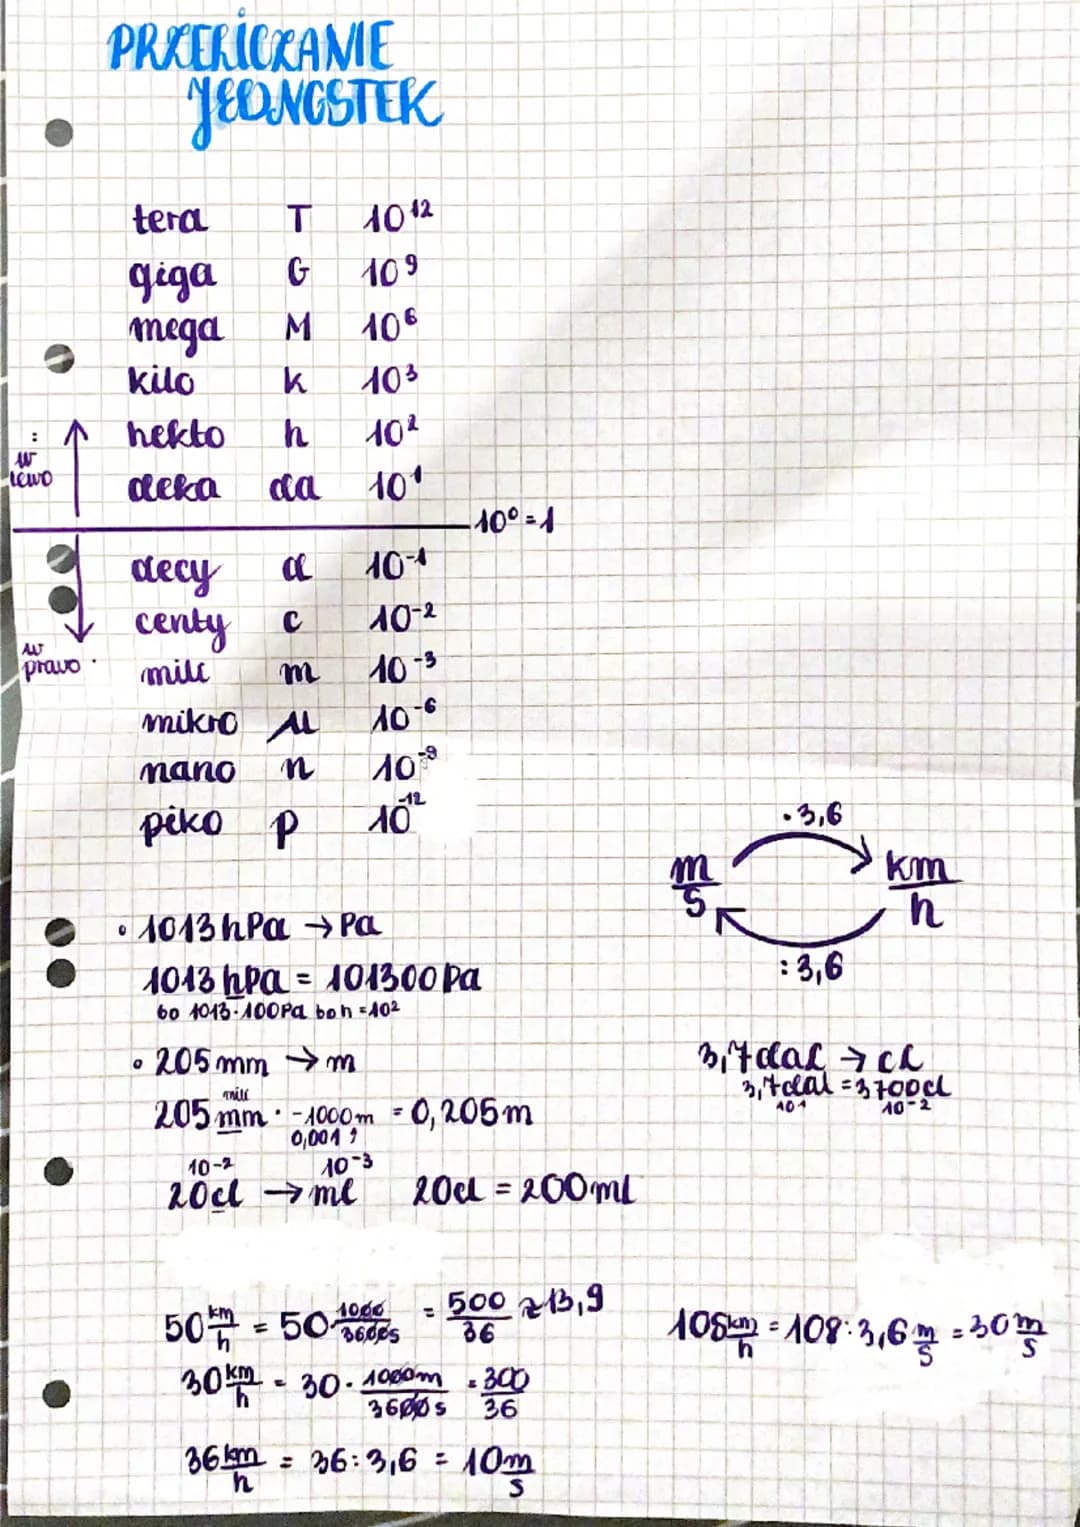 PRZELICZANIE
JEDNOSTEK
tera T 10¹²
giga G 10⁹
mega M 10⁶
kilo k 10³
: w lewo
hekto h 10²
deka da 10¹
10⁰ = 1
decy d 10⁻¹
centy c 10⁻²
w prawo ·
mili m 10⁻³
mikro μ 10⁻⁶
nano n 10⁻⁹
piko p 10⁻¹²
· 3,6
m/s km/h
: 3,6
• 1013 hPa → Pa
1013 hPa = 101300 Pa
bo 1013·100Pa bo h = 10²
• 205 mm → m
mili
205 mm · -1000m = 0,205 m
0,001
10⁻² 10⁻³
20cl → ml 20cl = 200ml
3,7dal → cl
3,7dal = 3700cl
10¹ 10⁻²
50 km/h = 50 · 1000/3600s = 500/36 ≈ 13,9
30 km/h = 30 · 1000m/3600s = 300/36
36 km/h = 36 : 3,6 = 10 m/s
108 km/h = 108 : 3,6 m/s = 30 m/s